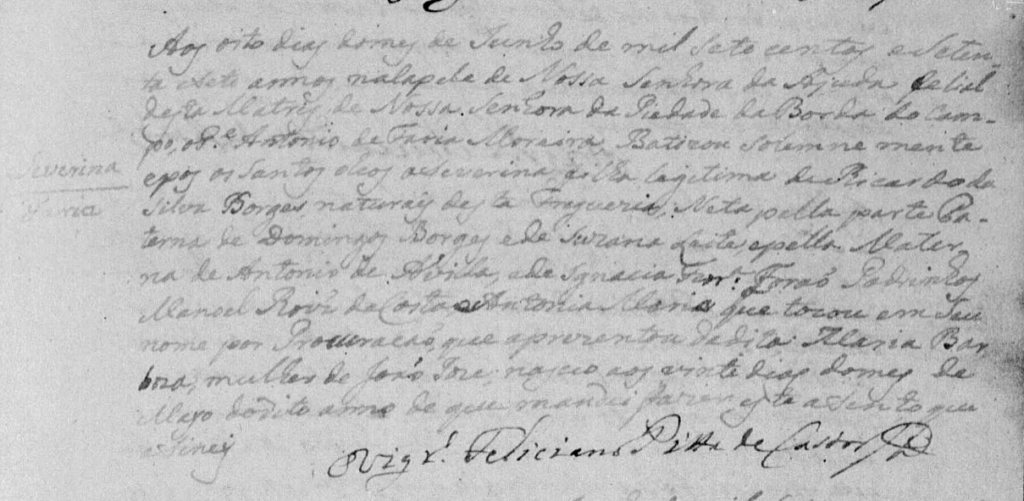 Aos oito dias domes de Junho de mil Sete centos e Seten-
ta e Sete annos na Capela de Nossa Senhora da Ajuda filial
desta Matris de Nossa Senhora da Piedade da Borda do Cam-
po, o P.e Antonio de Faria Moreira Batizou Solemne mente
e pos os Santos oleos a Severina, filha legitima de Ricardo da
Silva Borges naturais desta Freguezia, Neta pella parte Pa-
terna de Domingos Borges e de Suzana Leite, e pella Mater
na de Antonio de Avila, e de Ignacia Forão Padrinhos
Manoel Roiz da Costa e Antonia Maria que tocou em Seu
nome por Procuração, que aprezentou da dita Maria Bar
boza, mulher de João Joze, nasceo aos vinte dias domes de
Mayo do dito anno de que mandei fazer este asento que
asiney
O Vigr.o Feliciano Pitta de Castro
Severina
Maria